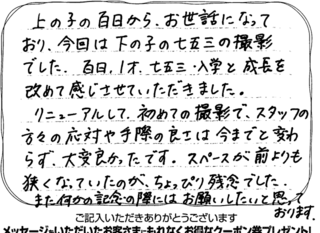 上の子の百日から、お世話になって
おり、今回は下の子の七五三の撮影
でした。百日、1才、七五三・入学と成長を
改めて感じさせていただきました。
リニューアルして、初めての撮影で、スタッフの
方々の応対や手際の良さは今までと変わ
らず、大変良かったです。スペースが前よりも
狭くなっていたのが、ちょっぴり残念でした。
また何かの記念の際にはお願いしたいと思って
おります。
ご記入いただきありがとうございます
メッセージをいただいたお客さまにもれなくお得なクーポン券プレゼント!